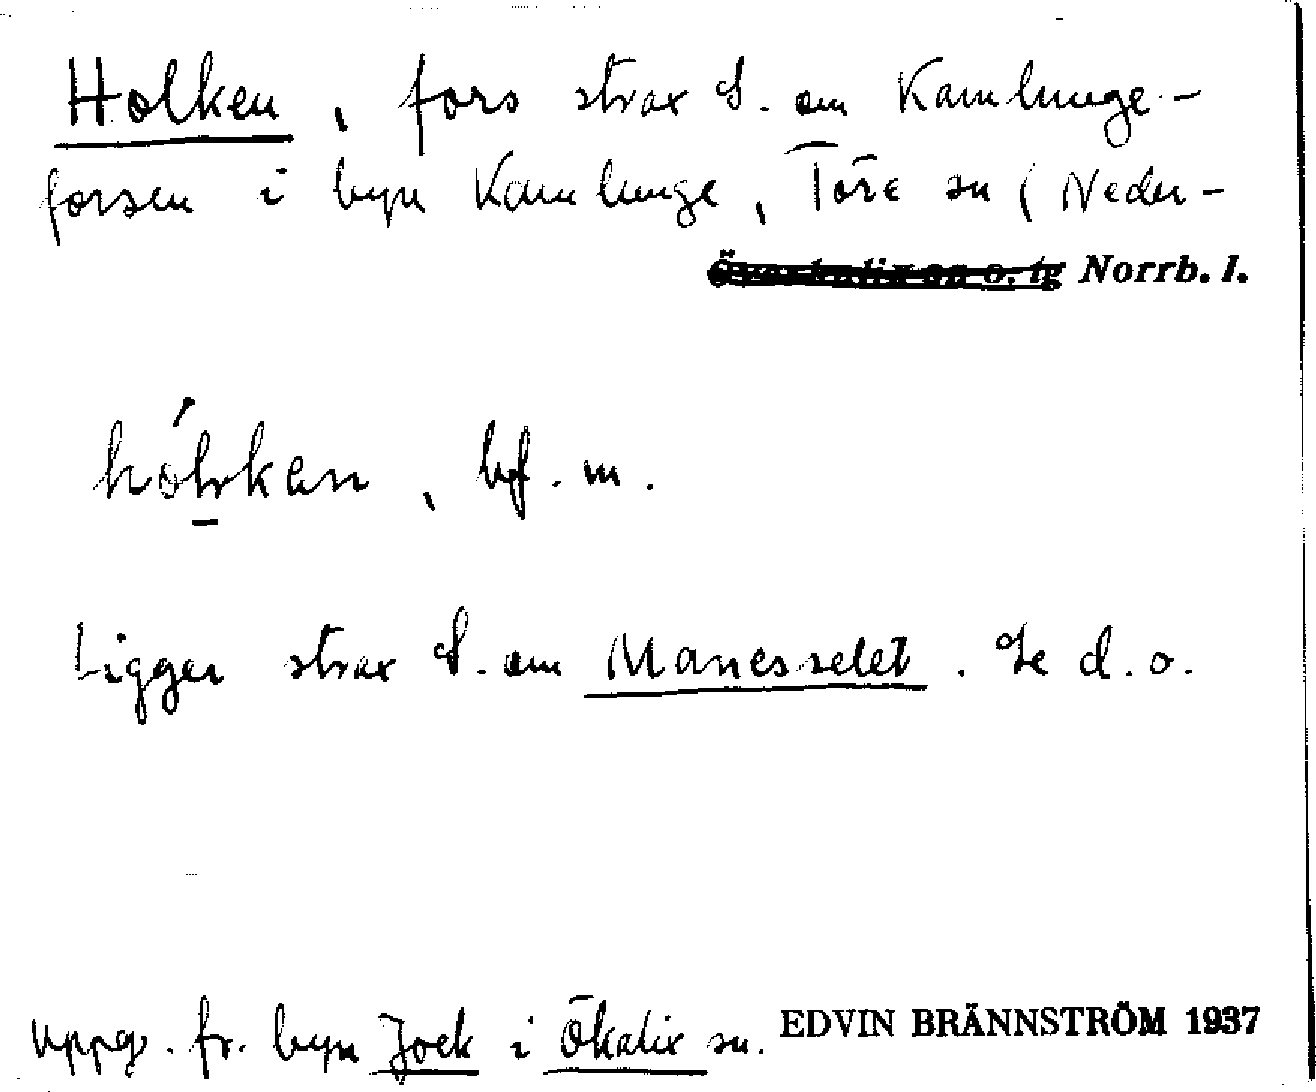 Holken, fors strax S. om Kamlunge-
forsen i byn Kamlunge, Töre sn (Neder-
Överkalix sn o. tg Norrb. l.
hólkan, bf. m.
Ligger strax S. om Manesselet. Se d. o.
Uppg. fr. byn Jock i Ökalix sn. EDVIN BRÄNNSTRÖM 1937